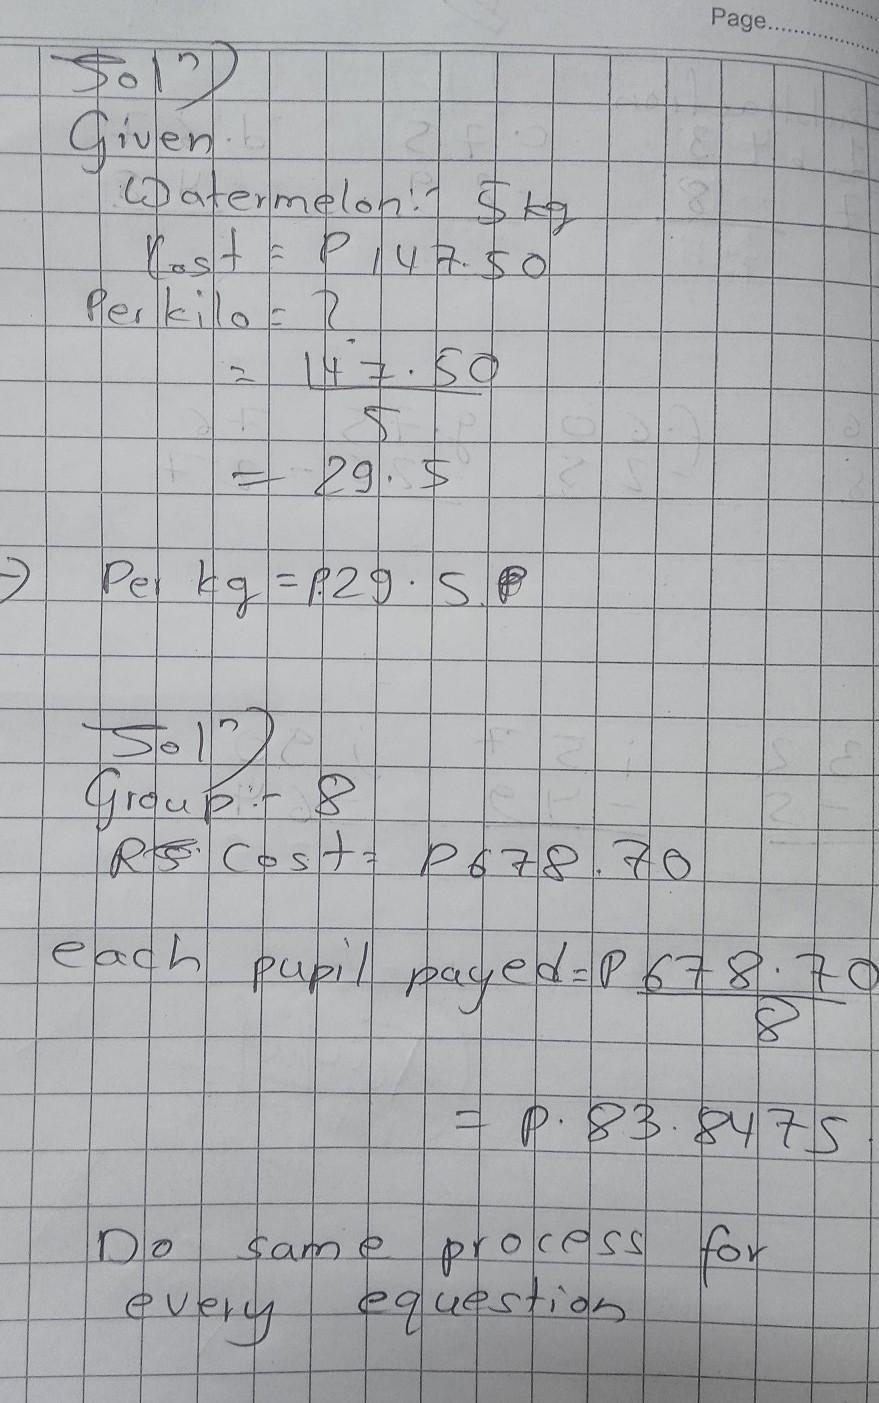 Page..............
Soln)
Given
Watermelon:- 5 kg
Cost = P 147.50
Per kilo = ?
= 147.50
5
= 29.5
=) Per kg = P.29.5.
Soln)
Group:- 8
Cost = P 678.70
each pupil payed = P 678.70
8
= P. 83.8475.
Do same process for
every equestion